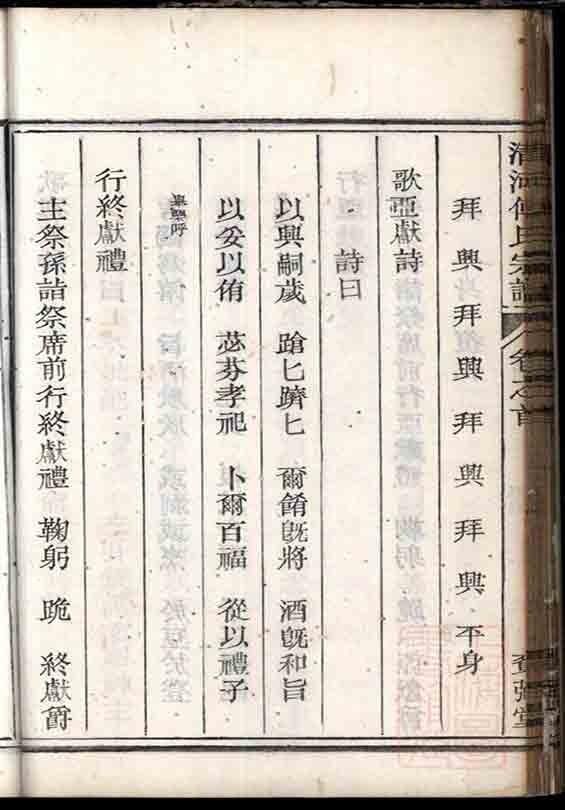 清河傅氏宗譜 卷之首 堂
拜 興 拜 興 拜 興 拜 興 平身
歌亞獻詩
詩曰
以興嗣歲 蹌匕躋匕 爾餚旣將 酒旣和旨
以妥以侑 苾芬孝祀 卜爾百福 從以禮子
行終獻禮
主祭孫詣祭席前行終獻禮 鞠躬 跪 終獻爵